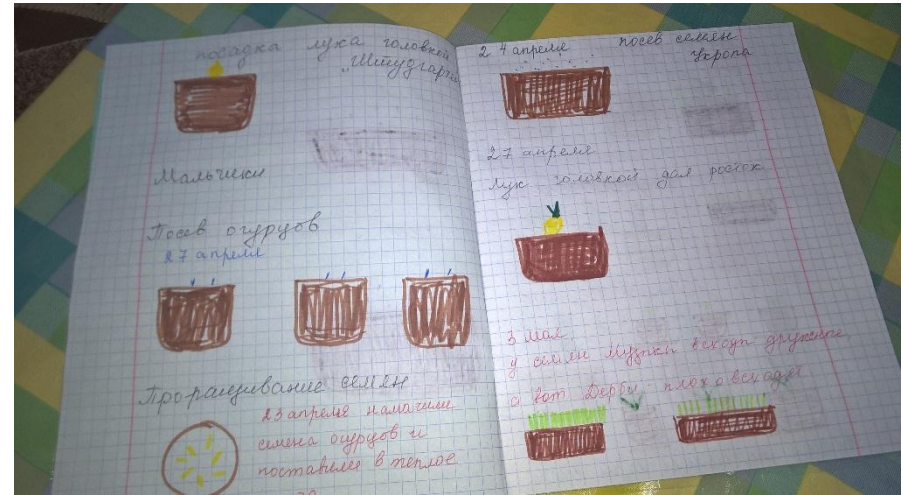 посадка лука головкой
"Штудгартен
Мальчики
Посев огурцов
27 апреля
Проращивание семян
23 апреля намочили
семена огурцов и
поставили в теплое
24 апреля посев семян
Укропа
27 апреля
Лук головкой дал росток
3 мая
у семян Музыки всходы дружные,
а вот Дерби плохо всходят